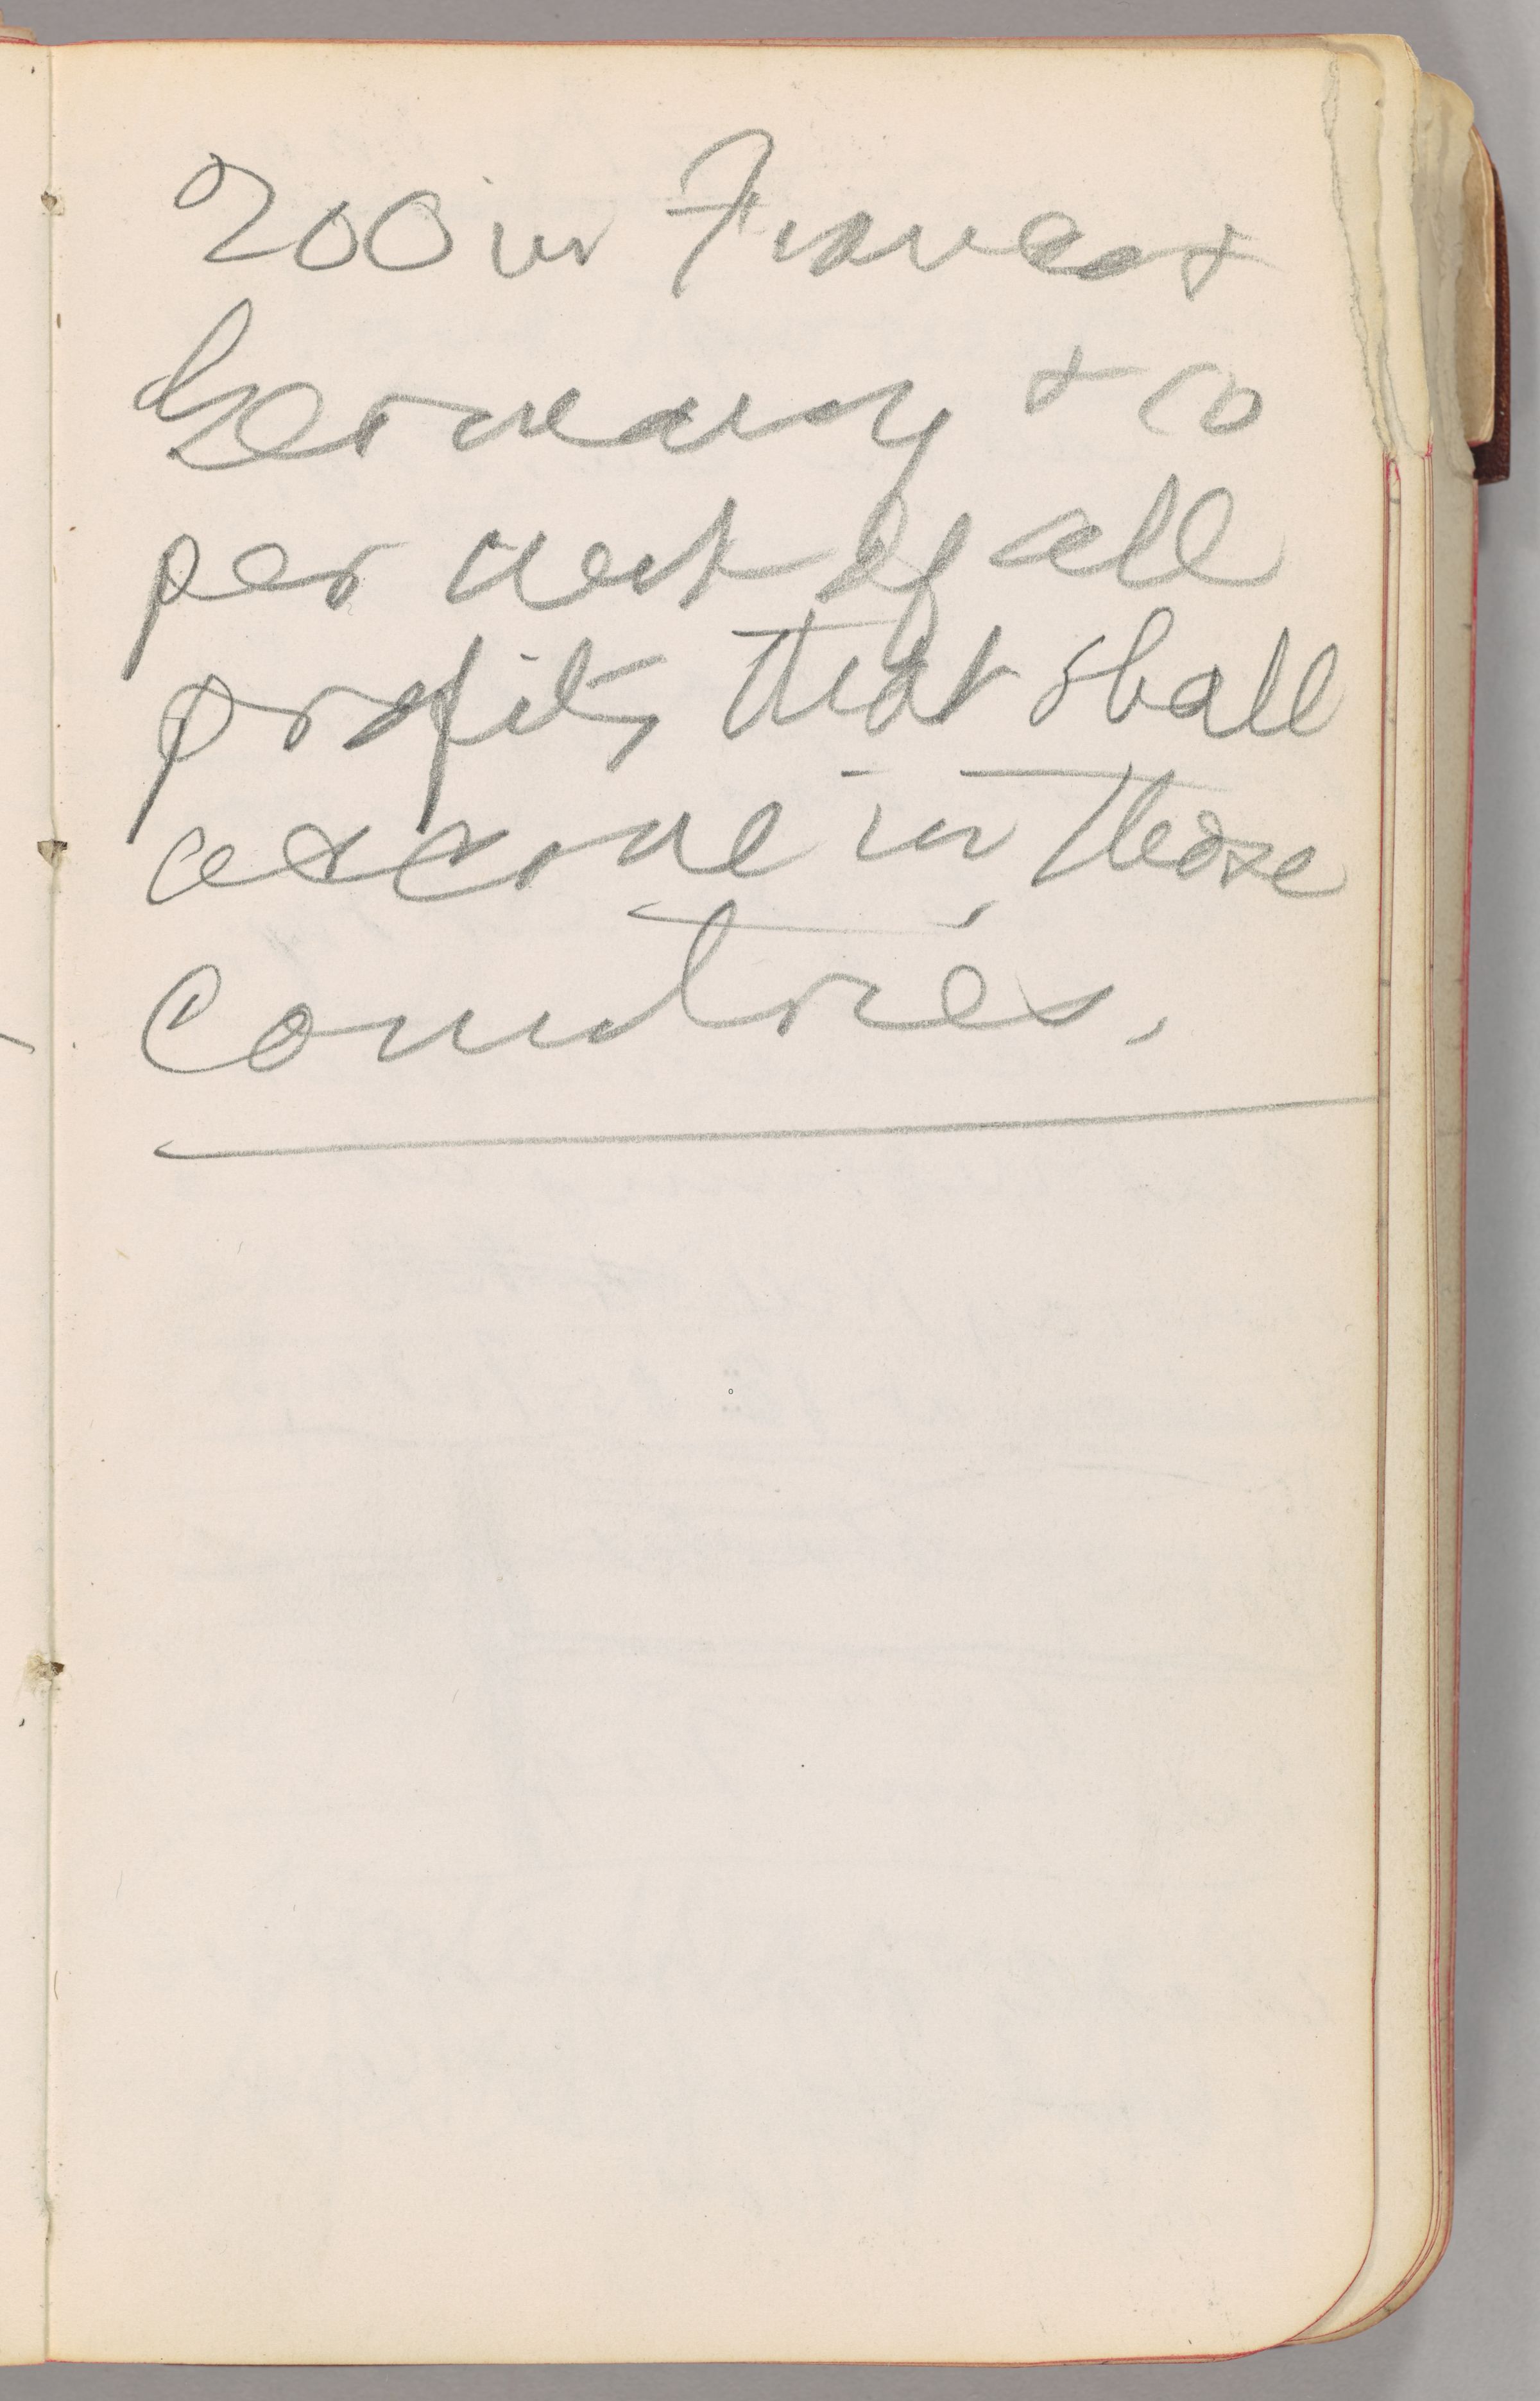 200 in France &
Germany & 10
per cent of all
profits that shall
accrue in those
Countries.